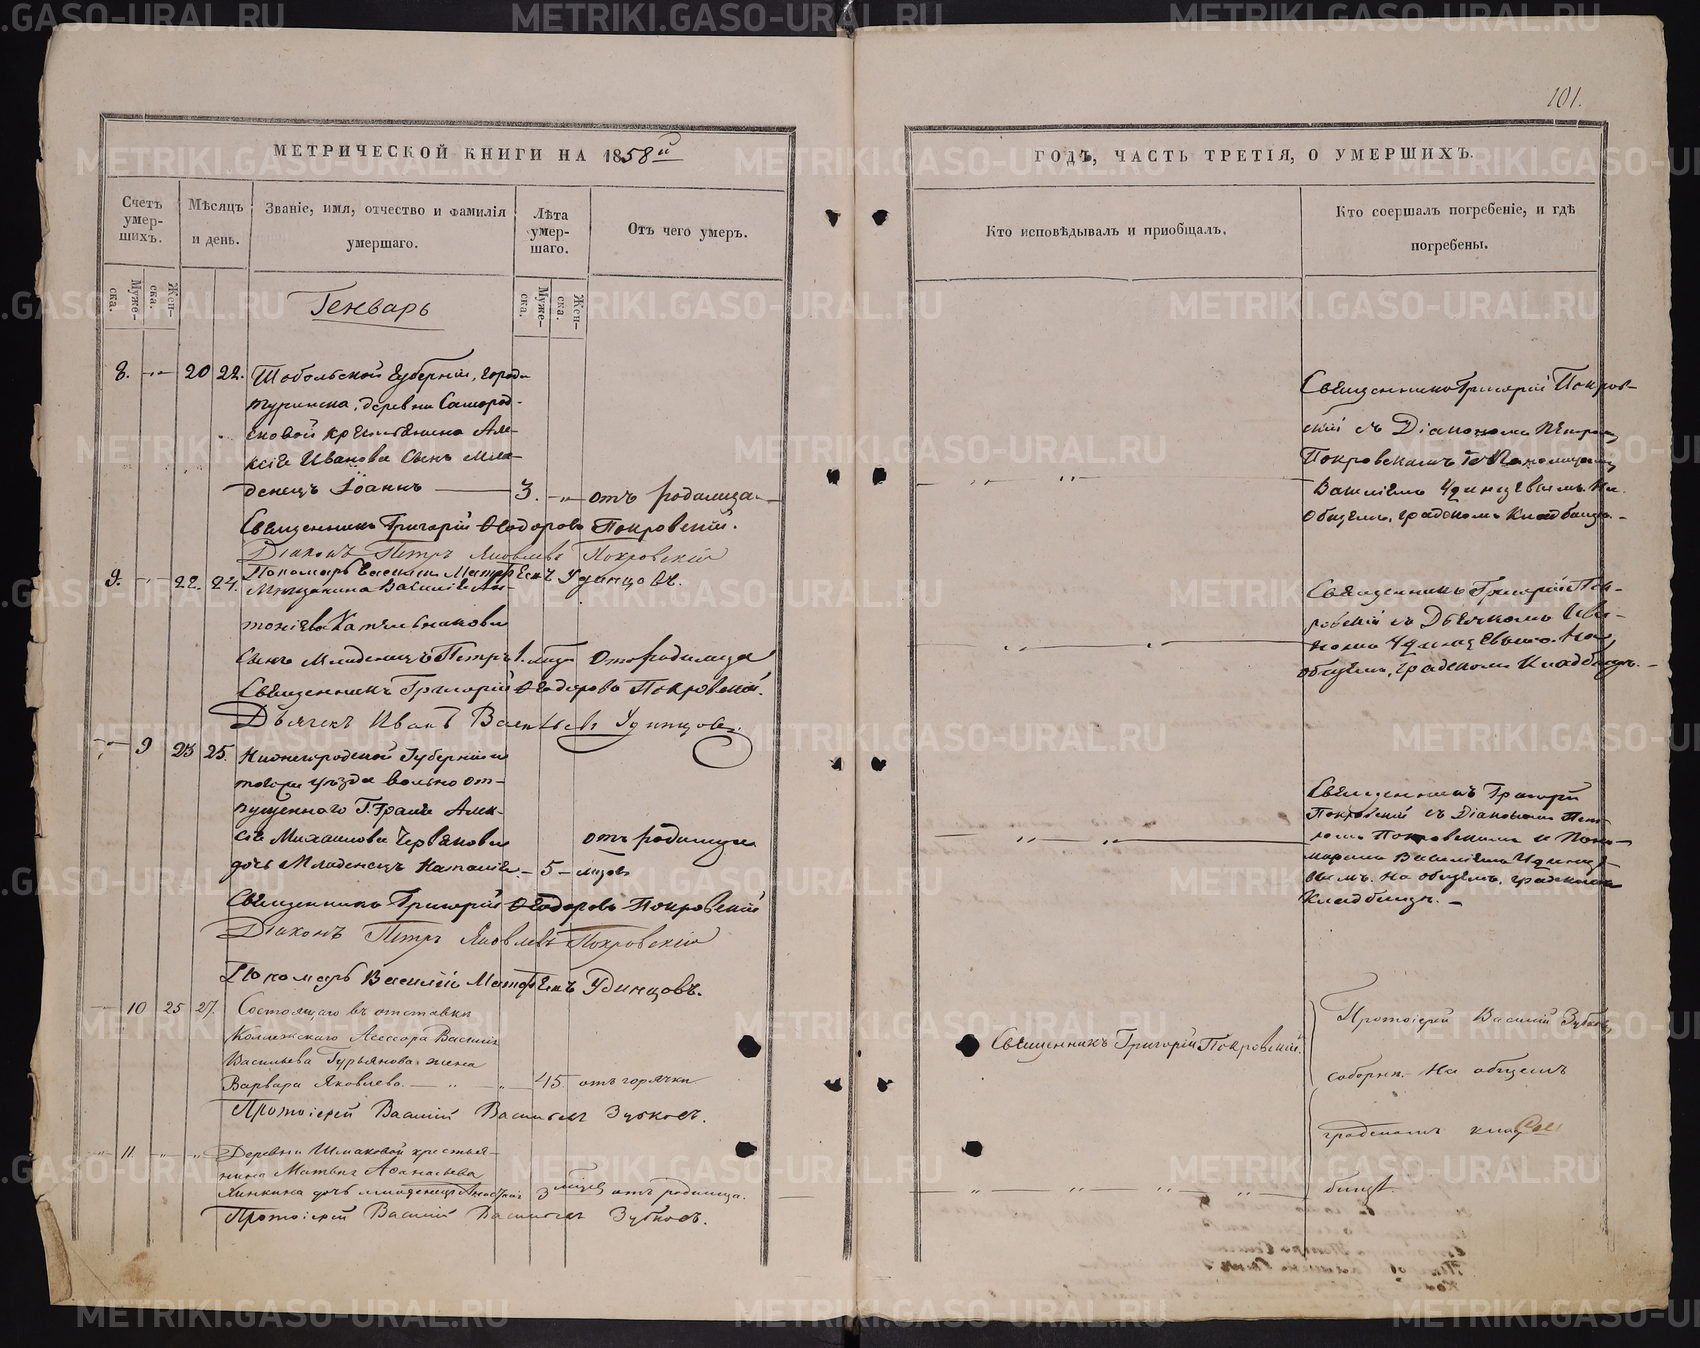 101.
МЕТРИЧЕСКОЙ КНИГИ НА 1858й
ГОДЪ, ЧАСТЬ ТРЕТІЯ, О УМЕРШИХЪ.
Счетъ умер-
шихъ.
Мѣсяцъ
и день.
Званіе, имя, отчество и фамилія
умершаго.
Лѣта
умер-
шаго.
Отъ чего умеръ.
Кто исповѣдывалъ и пріобщалъ.
Кто соершалъ погребеніе, и гдѣ
погребены.
Муже-
ска.
Жен-
ска.
Муже-
ска.
Жен-
ска.
Генварь
8. 20 22. Тобольской Губерніи, города
Туринска, деревни
крестьянина Але-
ксіе Иванова сынъ мла-
денецъ Іоаннъ 3. отъ родимца
Священникъ Григорій Ѳеодоровъ Покровскій.
Діаконъ Петръ Яковлевъ Покровскій
Пономарь Василій Матфеевъ Удинцовъ.
Священникъ Григорій Покров-
скій съ Діакономъ Петромъ
Покровскимъ и Пономаремъ
Василіемъ Удинцевымъ. На
общемъ, градскомъ Кладбищѣ.
9. 22. 24. Мѣщанина Василія Ан-
тоніева Котельникова
сынъ младенецъ Петръ 1. отъ родимца
Священникъ Григорій Ѳеодоровъ Покровскій.
Дьячекъ Иванъ Васильевъ Удинцовъ.
Священникъ Григорій Пок-
ровскій съ Дьячкомъ Ива-
номъ Удинцевымъ. На
общемъ, градскомъ Кладбищѣ.
9 23 25. Нижегородской Губерніи и
уѣзда вольно от-
пущеннаго Г. Алек-
сіе Михаилова
дочь младенецъ Наталія 5 отъ родимца
Священникъ Григорій Ѳеодоровъ Покровскій
Діаконъ Петръ Яковлевъ Покровскій
Пономарь Василій Матфеевъ Удинцовъ.
Священникъ Григорій
Покровскій съ Діакономъ Пет-
ромъ Покровскимъ и Поно-
маремъ Василіемъ Удинце-
вымъ. На общемъ, градскомъ
Кладбищѣ.
10 25 27. Состоящаго въ отставкѣ
Коллежскаго Асессора Василія
Васильева Гурьянова жена
Варвара Яковлева 45. отъ горячки
Протоіерей Василій Васильевъ Зубковъ.
Священникъ Григорій Покровскій.
Протоіерей Василій Зубковъ,
соборнѣ. На общемъ
градскомъ клад
бищѣ.
11 Деревни Шмаковой крестья-
нина Матвея Аѳанасьева
дочь младенецъ 3 отъ родимца.
Протоіерей Василій Васильевъ Зубковъ.
METRIKI.GASO-URAL.RU